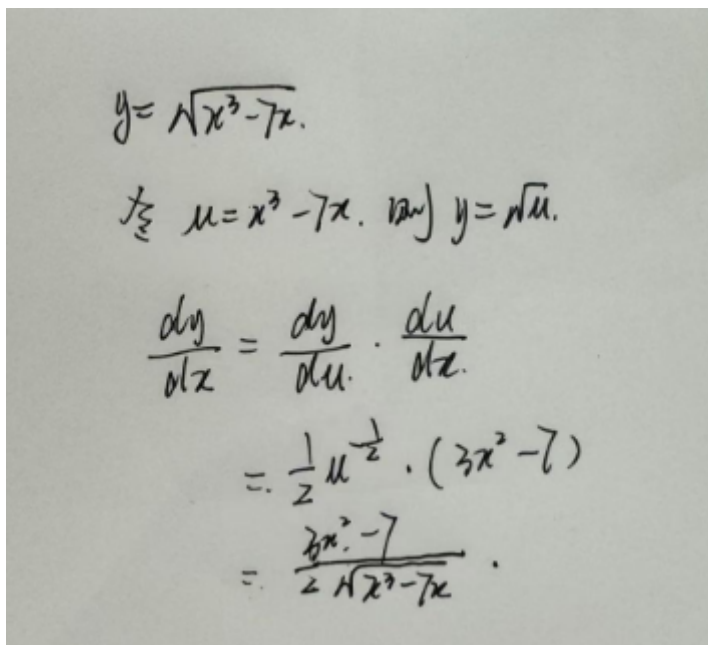 y = √(x³ - 7x).
令 u = x³ - 7x. 则 y = √u.
dy/dx = dy/du. · du/dx.
=. 1/2 u^(-1/2) · (3x² - 7)
= (3x² - 7)/(2√(x³ - 7x)) .